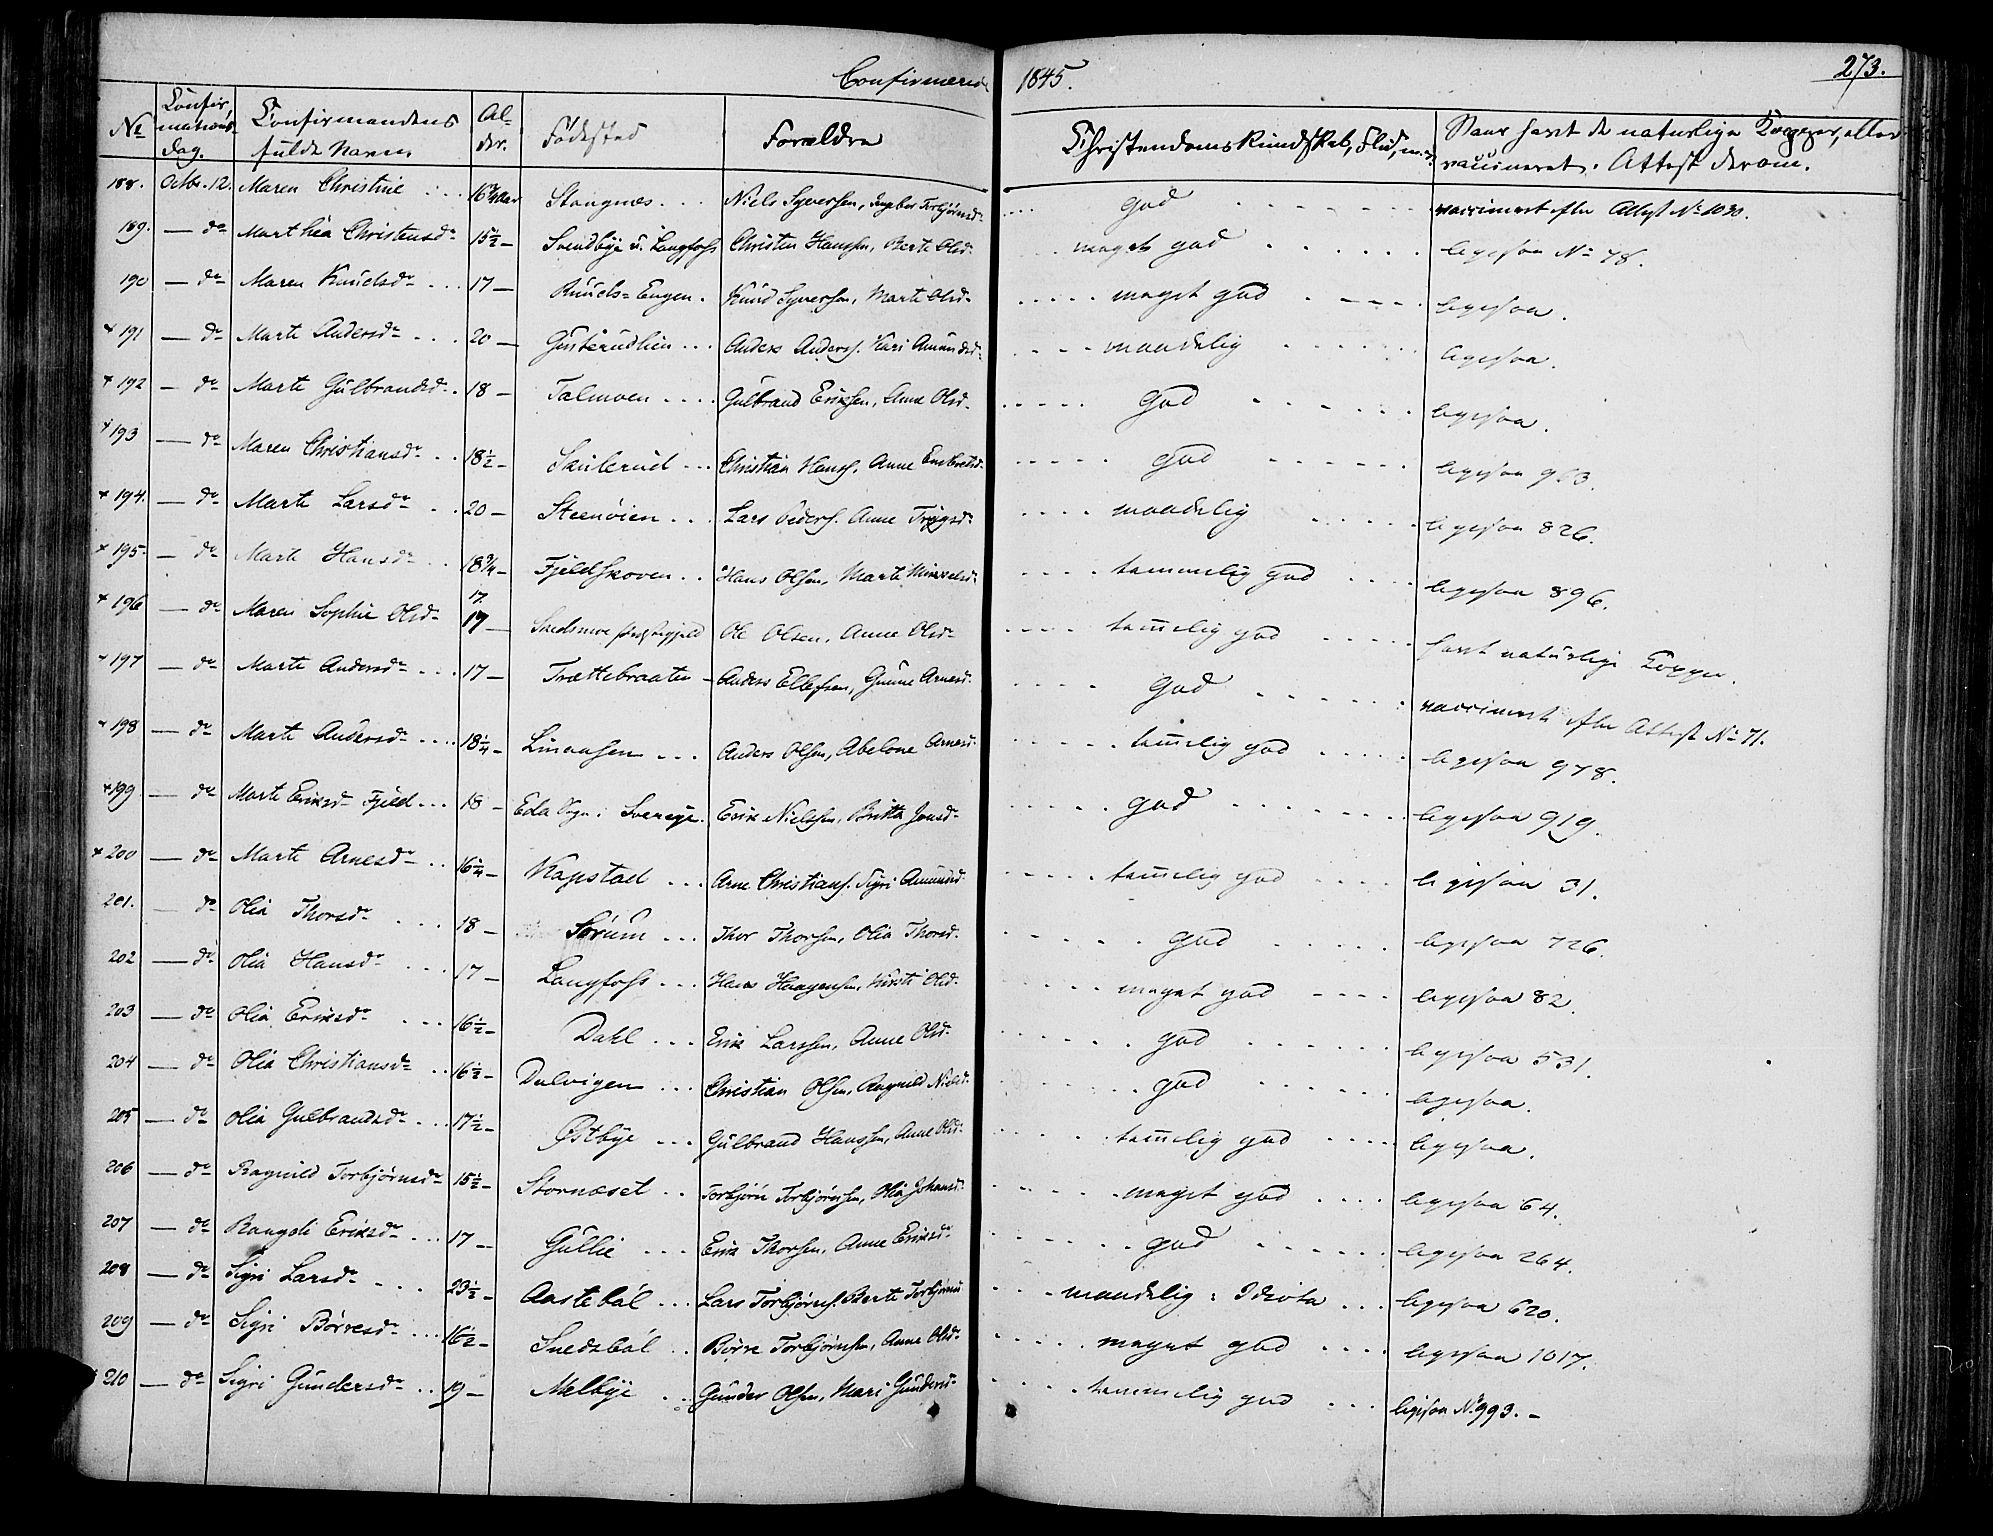 Confirmerede 1845. 273.
No Confirmations Dag. Confirmandens fulde Navn. Alder. Fødested Forældre Christendoms Kundskab, Flid, m.v. Naar havt de naturlige Kopper, eller vaccineret. Attest derom.
188. Octbr. 12. Maren Christine 16 3/4 Aar Stangnæs Niels Syversen, Ingebor Torbjørnsdr god vaccineret efter Attest No 1030.
189. — do Marthea Christensdr 15 1/2 — Svendbye u. Langfoss Christen Hanssen, Berte Olsd. meget god ligesaa No 78.
190 — do Maren Knudsdr 17 — Ruuds-Engen Knud Syversen, Marte Olsd. meget god ligesaa.
+ 191 — do Marte Andersdr 20 — Gusterudlien Anders Anders. Kari Amundsd. maadelig ligesaa.
+ 192 — do Marte Gulbrandsd. 18 — Talmoen Gulbrand Eriksen, Anne Olsd. God ligesaa.
+ 193 — do Maren Christiansdr 18 1/2 — Saulerud Christian Hans. Anne Embretsd. God ligesaa 903.
+ 194. — do Marte Larsdr 20 — Steenøien Lars Peders. Anne Trygsdr maadelig ligesaa 826.
+ 195. — do Marte Hansdr 18 3/4 — Fjeldskoven Hans Olsen, Marte Mikkelsd. temmelig god ligesaa 896.
+ 196 — do Maren Sophie Olsd. 17. 17 — Snedsmoe Præstegjeld Ole Olsen, Anne Olsdr temelig god havt naturlige Kopper.
+ 197 — do Marte Andersdr 17 — Trættebraaten Anders Ellefsen, Gunne Arnesd. God vaccineret efter Attest No 71.
+ 198 — do Marte Andersdr 18 1/4 — Linaasen Anders Olsen, Abelone Arnesd. temelig god ligesaa 978.
+ 199 — do Marte Eriksdr Fjeld 18 — Eda Sogn i Sverige. Erik Nielsen, Britta Jonsdr god ligesaa 919.
+ 200 — do Marte Arnesdr 16 1/4 — Kapstad Arne Christians. Sigri Amundsd. temelig god ligesaa 31.
201. — do Olia Thorsdr 18 — Sørum Thor Thorsen, Olia Thorsd. god ligesaa 726.
202 — do Olia Hansdr 17 — Langfoss Hans Haagensen, Kirsti Olsd. meget god ligesaa 82.
203 — do Olia Eriksdr 16 1/2 — Dahl Erik Larssen, Anne Olsd. god ligesaa 531.
204 — do Olia Christiansdr 16 1/2 — Dalvigen Christian Olsen, Ragnild Nielsd. god ligesaa.
205 — do Olia Gulbrandsdr 17 1/2 — Østbye Gulbrand Hanssen, Anne Olsd. temelig god ligesaa.
206 — do Ragnild Torbjørnsdr 15 1/2 — Stornæset Torbjørn Torbjørnsen, Olia Johansd. meget god ligesaa 64.
207 — do Rangdi Eriksdr 17 — Gullie Erik Thorsen, Anne Eriksdr god ligesaa 264.
208 — do Sigri Larsdr 23 1/2 — Aastebøl Lars Torbjørns. Berte Torbjørns maadelig: Idiota ligesaa 620.
209 — do Sigri Børresdr 16 1/2 — Snedsbøl Børre Torbjørnsen, Anne Olsd. meget god ligesaa 1017.
+ 210 — do Sigri Gundersdr 19 — Melbye Gunder Olsen, Mari Gundersdr temmelig god ligesaa No 993. —